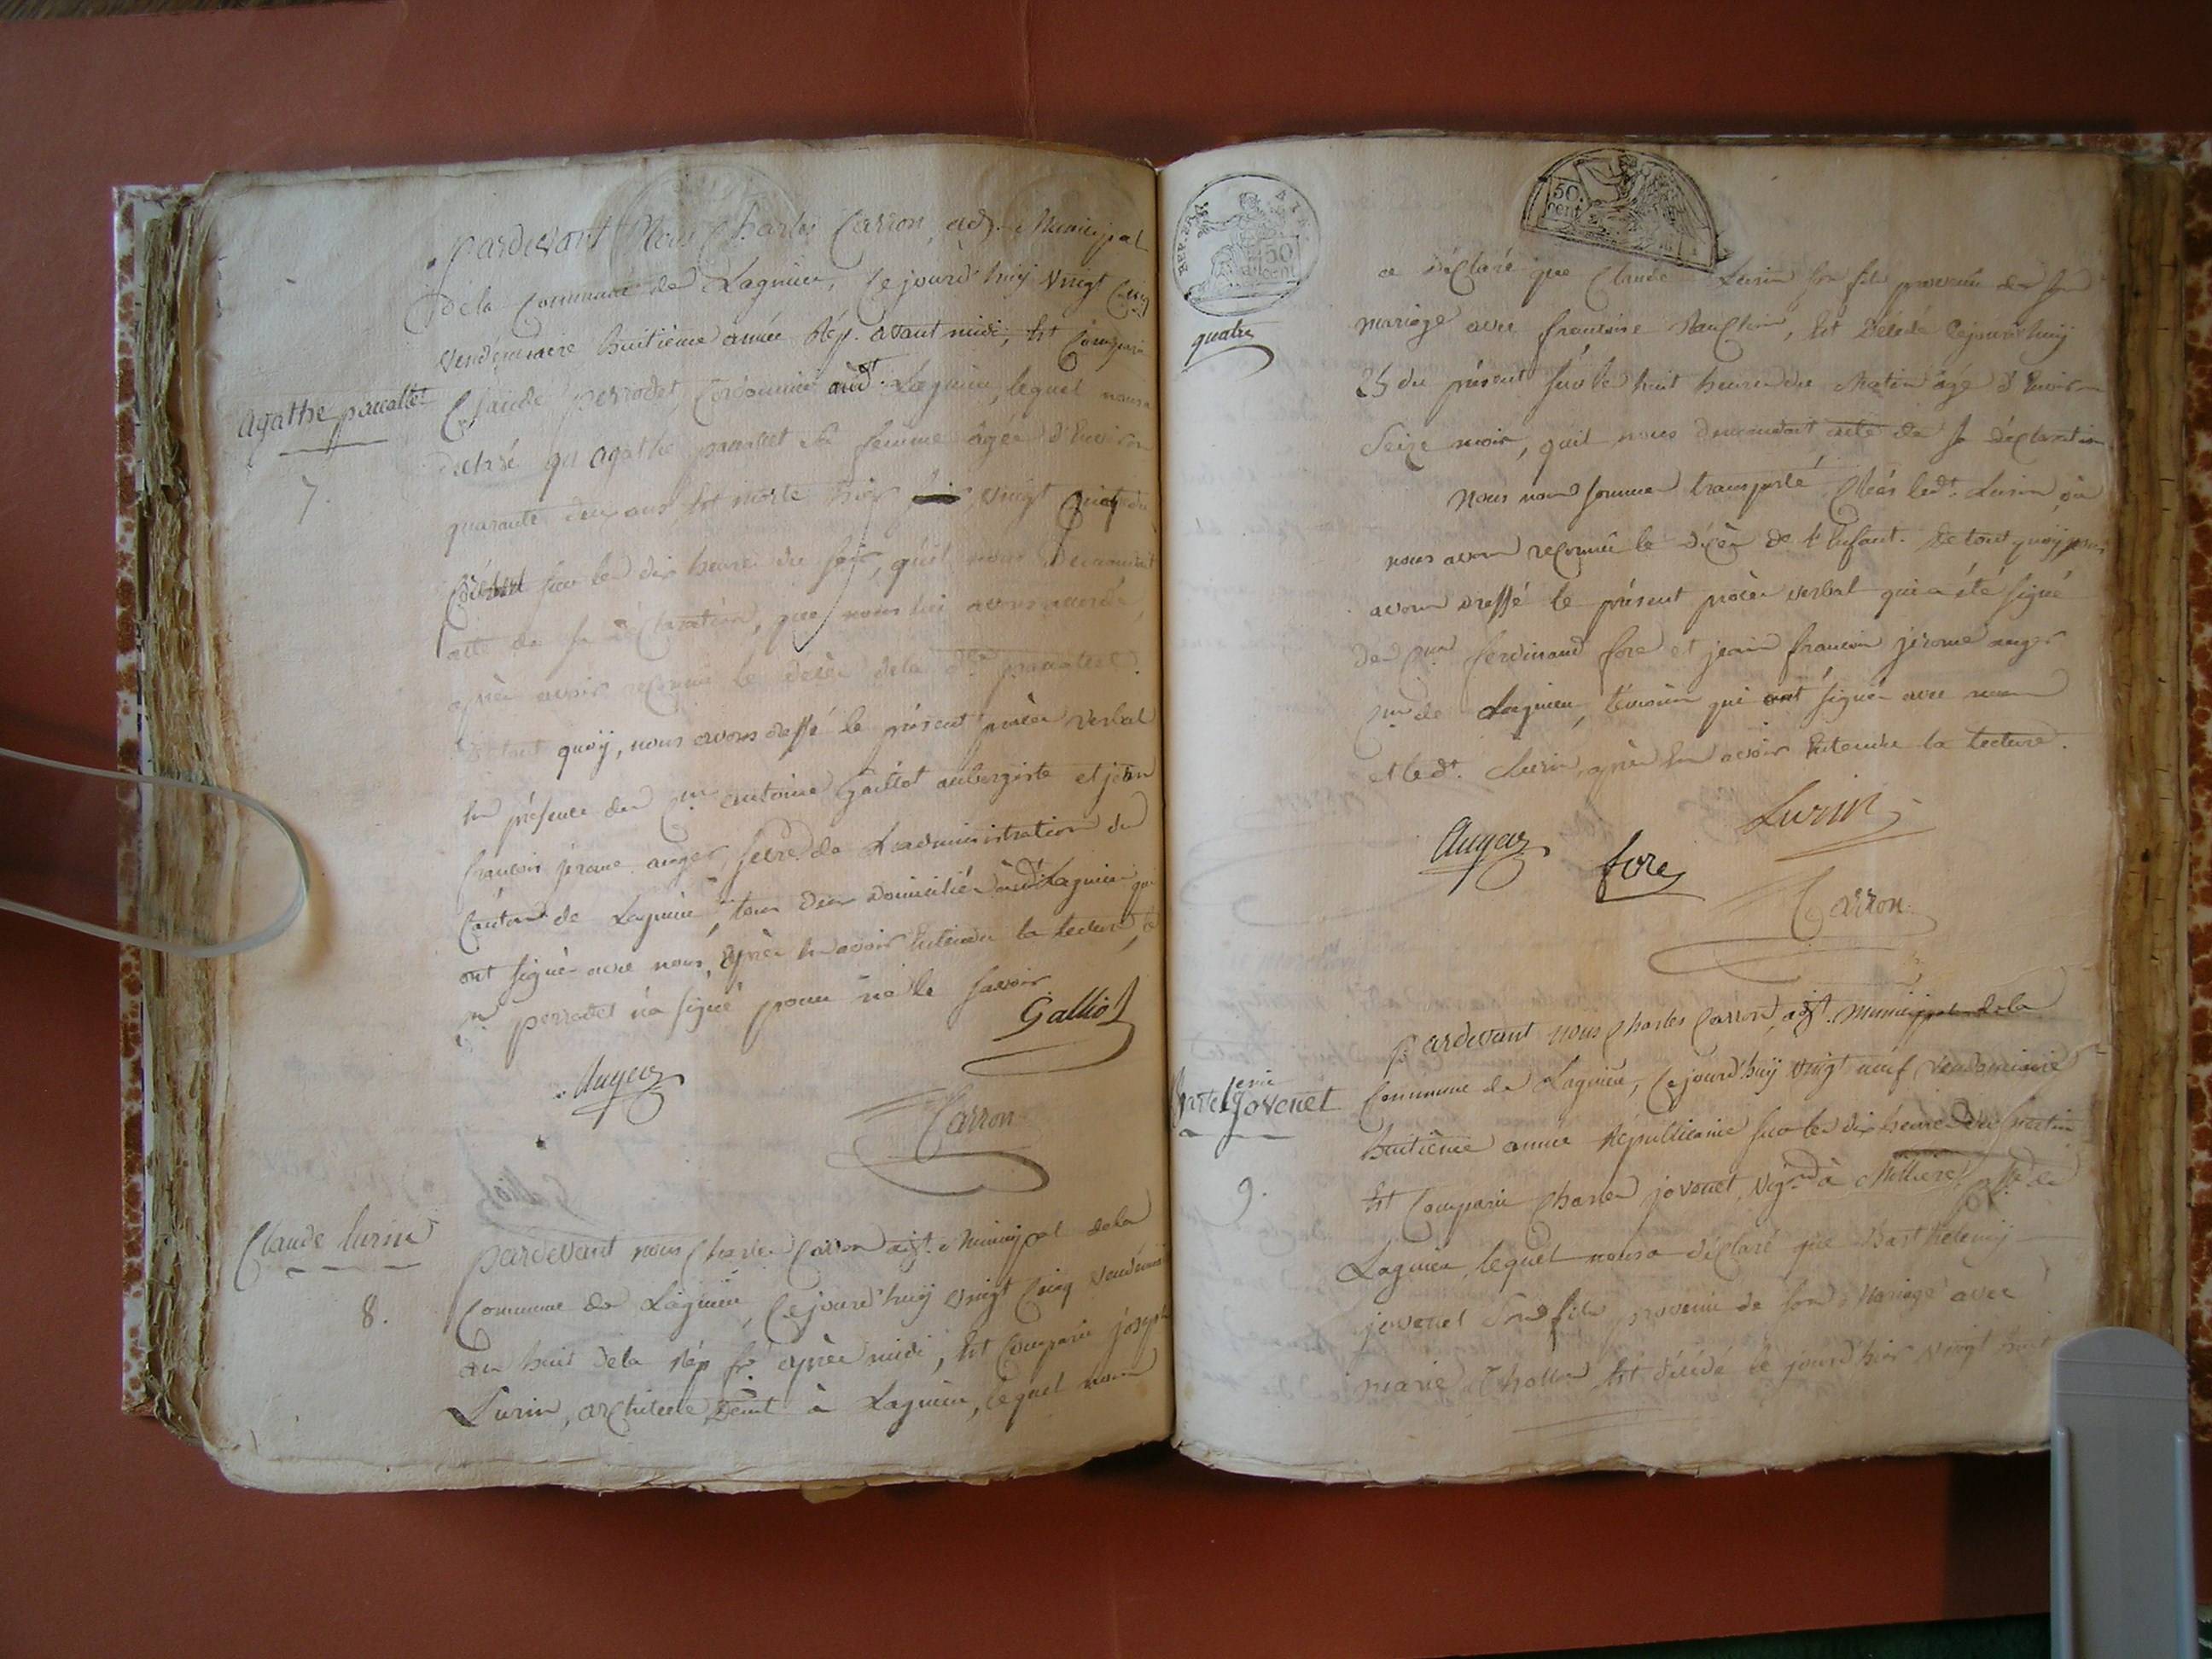 Pardevant Nous Charles Carron, adj. Municipal
De la Commune de Lagnieu, Cejourd'huy Vingt Cinq
Vendemiaire huitième année Rép. avant midi, Est Comparu
Agathe pauallet
7.
Claude perrodet Cordonnier aud.t Lagnieu, lequel nous a
déclaré que Agathe pauallet sa femme âgée d'Environ
quarante deux ans, Est morte hier vingt
sur les dix heures du soir, qu'il nous Demandoit
acte de sa déclaration, que nous lui avons accordé,
après avoir reconnu le décès de la d.te pauallet.
De tout quoy, nous avons dressé le présent procès verbal
En présence des C.ens antoine Galliot aubergiste et jean
françois jérome auger, secre. de L'administration du
Canton de Lagnieu, tous deux Domiciliés aud.t Lagnieu qui
ont signés avec nous, après En avoir Entendu la lecture,
perrodet n'a signé pour ne le savoir
Galliot
Auger
Carron
Claude lurin
8.
Pardevant nous Charles Carron adjt. Municipal de la
Commune de Lagnieu, Cejourd'huy Vingt Cinq Vendémiaire
an huit de la Rép. fr. après midi, Est Comparu joseph
Lurin, architecte, à Lagnieu, lequel nous
REP. FRA.
50 cent
50. cent
quatre
a déclaré que Claude Lurin son fils provenu de son
mariage avec françoise, Est Décédé Cejourd'huy
25 du présent sur les huit heures du Matin âgé d'Environ
Seize mois, qu'il nous demandoit acte de sa déclaration
Nous nous sommes transporté Chés led.t Lurin, où
nous avons reconnu le décès de l'Enfant. De tout quoy nous
avons dressé le présent procès verbal qui a été signé
Des C.ens ferdinand fore et jean francois jérome auger
de Lagnieu, témoins qui ont signés avec nous
et led.t Lurin, après En avoir Entendu la lecture.
Lurin
Auger
fore
Carron
Pardevant nous Charles Carron, adjt. Municipal de la
Bartel.emi jovenet
9.
Commune de Lagnieu, Cejourd'huy Vingt neuf Vendemiaire
huitième année Républicaine sur les dix heures du Matin
Est Comparu Charles jovenet, Vig.on à, p.sse de
Lagnieu, lequel nous a déclaré que Barthelemy
jovenet Son fils, provenu de son Mariage avec
marie Est décédé le jour d'hier vingt huit